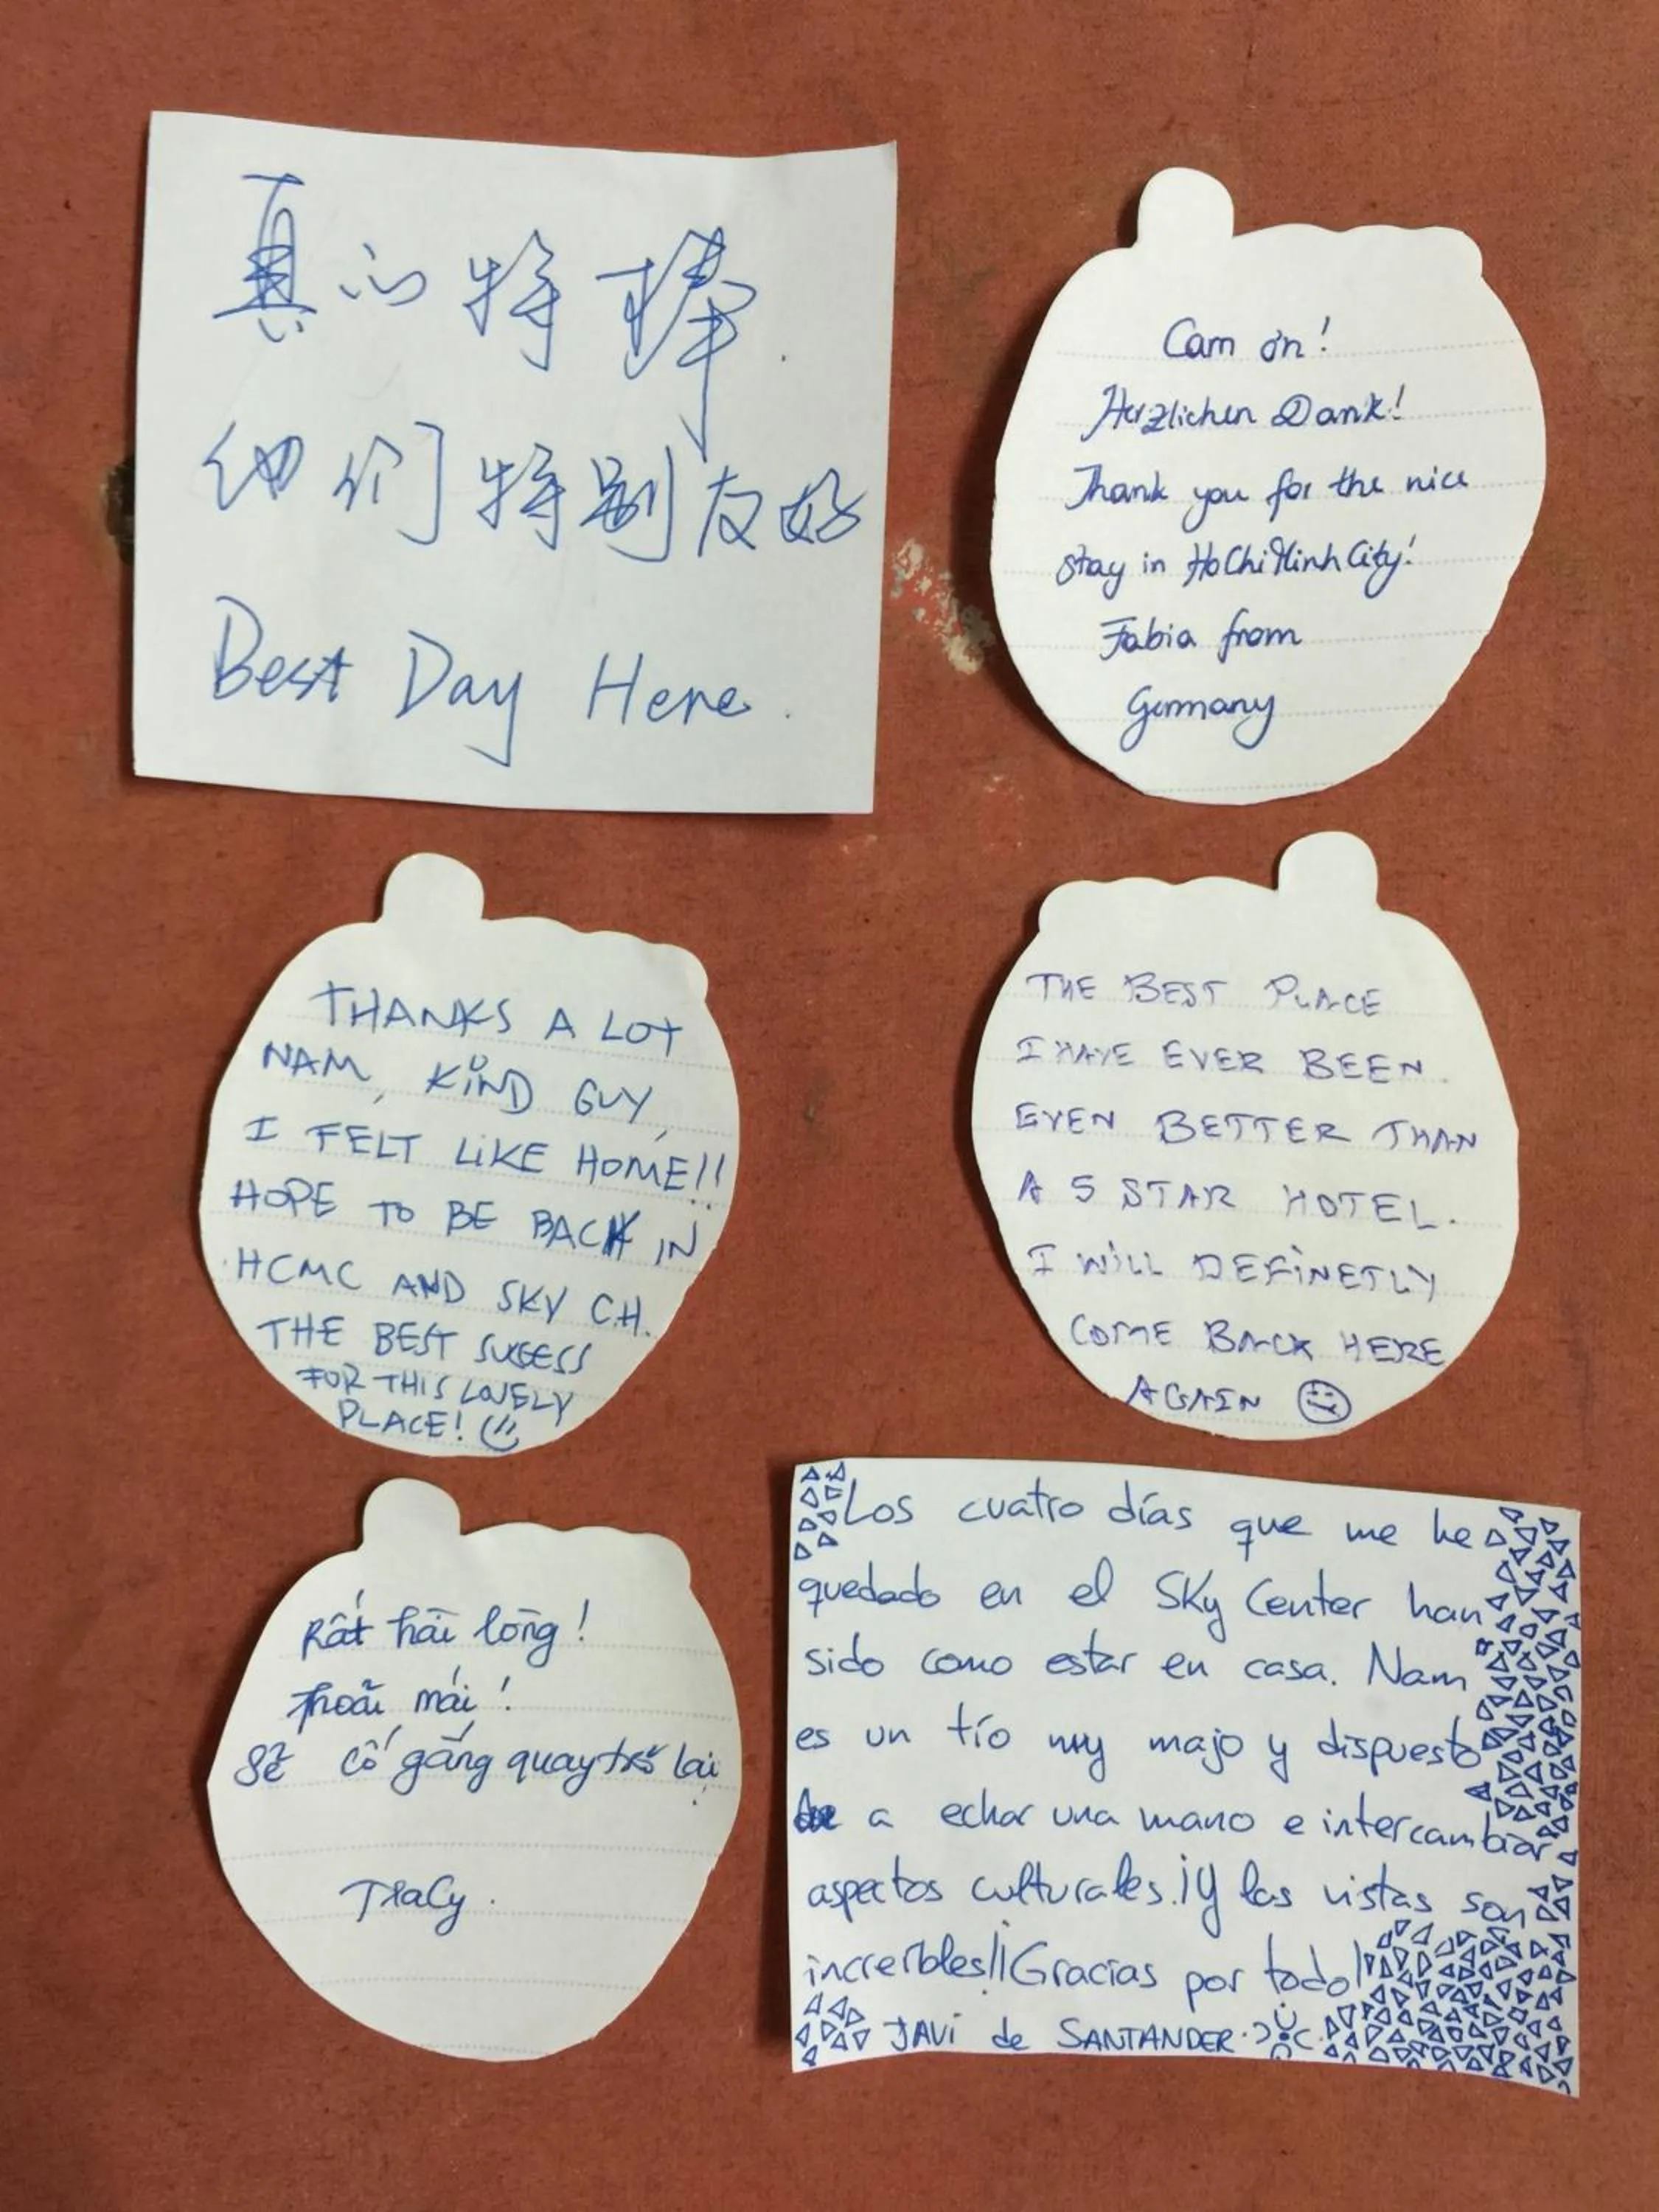 真心特棒.
他们特别友好
Best Day Here.
Cam ơn!
Herzlichen Dank!
Thank you for the nice
stay in Ho Chi Minh City!
Fabia from
Germany
THANKS A LOT
NAM, KIND GUY,
I FELT LIKE HOME!!
HOPE TO BE BACK IN
HCMC AND SKY C.H.
THE BEST SUCCESS
FOR THIS LOVELY
PLACE!
THE BEST PLACE
I HAVE EVER BEEN.
EVEN BETTER THAN
A 5 STAR HOTEL.
I WILL DEFINETLY
COME BACK HERE
AGAIN
Rất hài lòng!
Thoải mái!
Sẽ cố gắng quay trở lại
Tracy.
Los cuatro días que me he
quedado en el Sky Center han
sido como estar en casa. Nam
es un tío muy majo y dispuesto
a echar una mano e intercambiar
aspectos culturales. ¡Y las vistas son
increíbles! ¡Gracias por todo!
JAVI de SANTANDER.